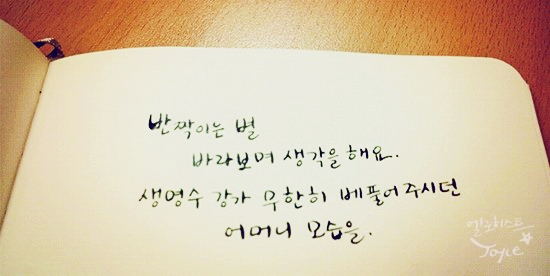 반짝이는 별
바라보며 생각을 해요.
생명수 강가 무한히 베풀어주시던
어머니 모습을.
엘로히스트
Joyce